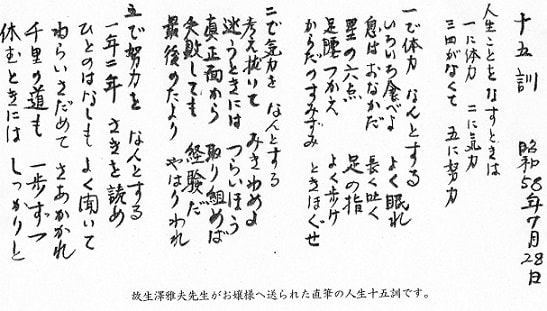 十五訓　昭和58年7月28日
人生ことをなすときは
一に体力　二に気力
三四がなくて　五に努力
一で体力　なんとする
いろいろ食べよ　よく眠れ
息はおなかだ　長く吐く
足腰つかえ　よく歩け
からだのすみずみ　ときほぐせ
二で気力を　なんとする
考え抜いて　みきわめよ
迷うときには　つらいほう
真正面から　取り組めば
失敗しても　経験だ
最後のたより　やはりわれ
五で努力を　なんとする
一年二年　さきを読め
ひとのはなしも　よく聞いて
ねらいさだめて　さあかかれ
千里の道も　一歩ずつ
休むときには　しっかりと
故生澤雅夫先生がお嬢様へ送られた直筆の人生十五訓です。